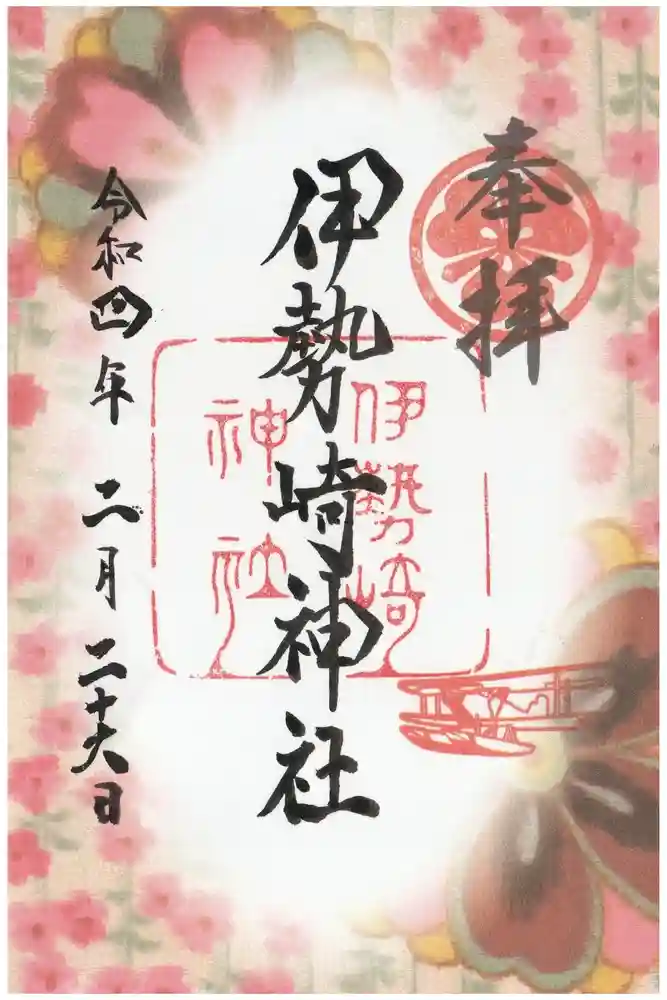 奉拝
伊勢崎神社
伊勢崎
神社
令和四年 二月 二十六日